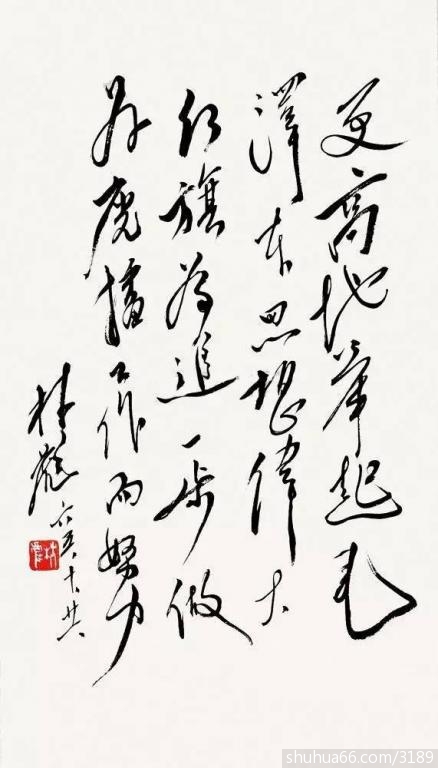 更高地举起毛
澤东思想偉大
红旗为進一步做
好廣播工作而努力
林彪
六五、十、廿六
shuhua66.com/3189